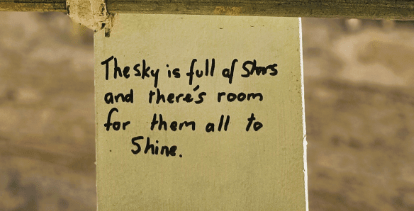 The sky is full of Stars
and there's room
for them all to
Shine.